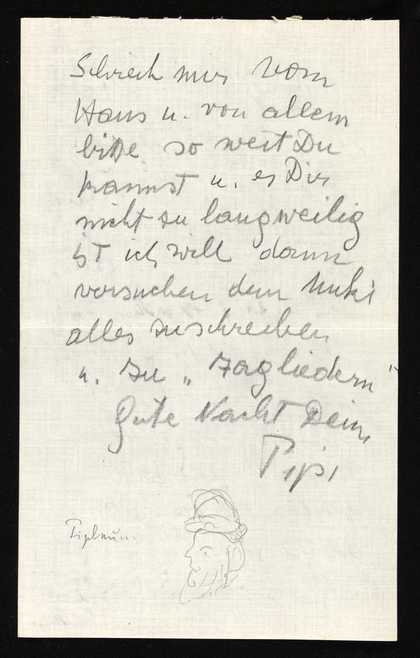 Schreib mir vom
Haus u. von allem
bitte so weit Du
kannst u. es Dir
nicht zu langweilig
ist ich will dann
versuchen dem Muki
alles zuschreiben
u. zu „zagliedern"
Gute Nacht Dein
Pipi